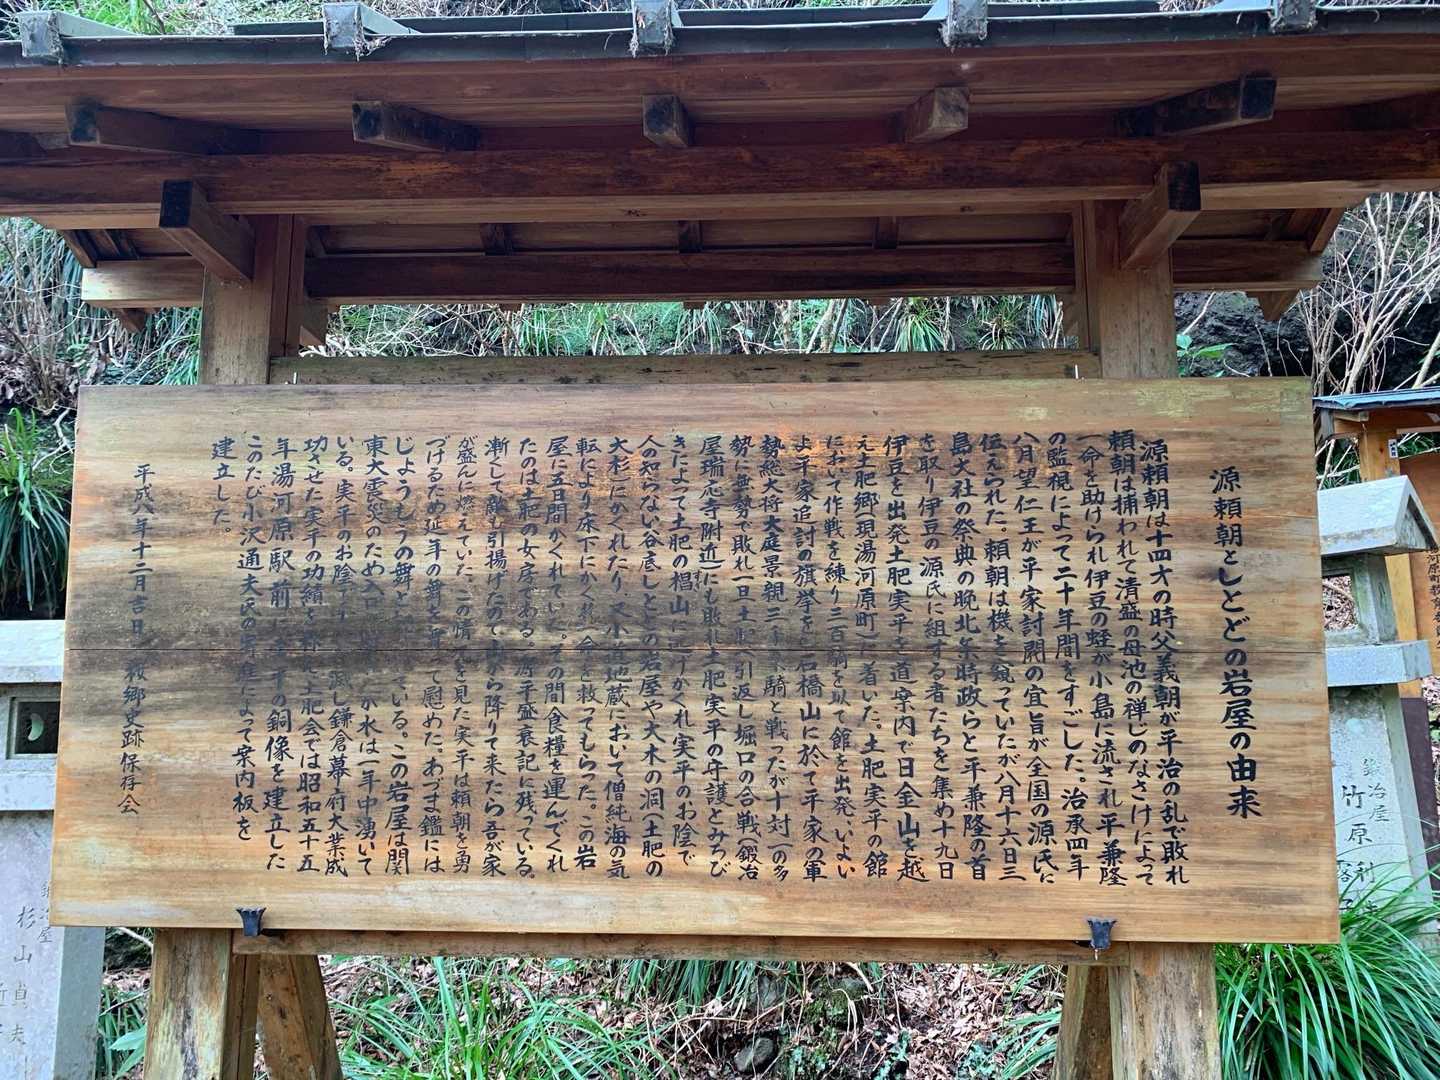 源頼朝としとどの岩屋の由来
源頼朝は十四才の時父義朝が平治の乱で敗れ
頼朝は捕われて清盛の母池の禅じのなさけによって
一命を助けられ伊豆の蛭が小島に流され平兼隆
の監視によって二十年間をすごした。治承四年
八月望仁王が平家討閞の宜旨が全国の源氏に
伝えられた。頼朝は機を窺っていたが八月十六日三
島大社の祭典の晩北条時政らと平兼隆の首
を取り伊豆の源氏に組する者たちを集め十九日
伊豆を出発土肥実平を道案内で日金山を越
え土肥郷(現湯河原町)に着いた。土肥実平の館
において作戦を練り三百騎を以て館を出発、いよい
よ平家追討の旗挙を石橋山に於て平家の軍
勢総大将大庭景親三千余騎と戦ったが十対一の多
勢に無勢で敗れ一旦土肥へ引返し堀口の合戦(鍛冶
屋瑞応寺附近)にも敗れ土肥実平の守護とみちび
きによって土肥の椙山に逃げかくれ実平のお陰で
人の知らない谷底しとどの岩屋や大木の洞(土肥の
大杉)にかくれたり、又小 地蔵において僧純海の気
転により床下にかくれ 命を救ってもらった。この岩
屋に五日間かくれていた。その間食糧を運んでくれ
たのは土肥の女房である。源平盛衰記に残っている。
漸くして敵も引揚げたので山から降りて来たら吾が家
が盛んに燃えていた、この情 を見た実平は頼朝を勇
づけるため延年の舞を舞って慰めた。あづま鑑には
じょうもうの舞と ている。この岩屋は関
東大震災のため入口 が水は一年中湧いて
いる。実平のお陰で 滅し鎌倉幕府大業成
功させた実平の功績を称え土肥会では昭和五十五
年湯河原駅前に 実平の銅像を建立した
このたび小沢通夫氏の寄進によって案内板を
建立した。
平成八年十二月吉日 郷史跡保存会
鍛冶屋
竹原利
杉山貞夫